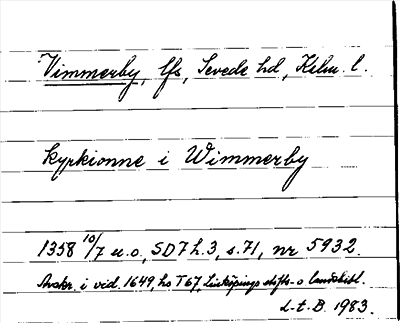 Vimmerby, lfs, Sevede hd, Kalm. l.
kyrkionne i Wimmerby
1358 10/7 u.o., SD7 h.3, s.71, nr 5932.
Avskr. i vid. 1649, hs T67, Linköpings stifts- o landsbibl.
L.t.B. 1983.